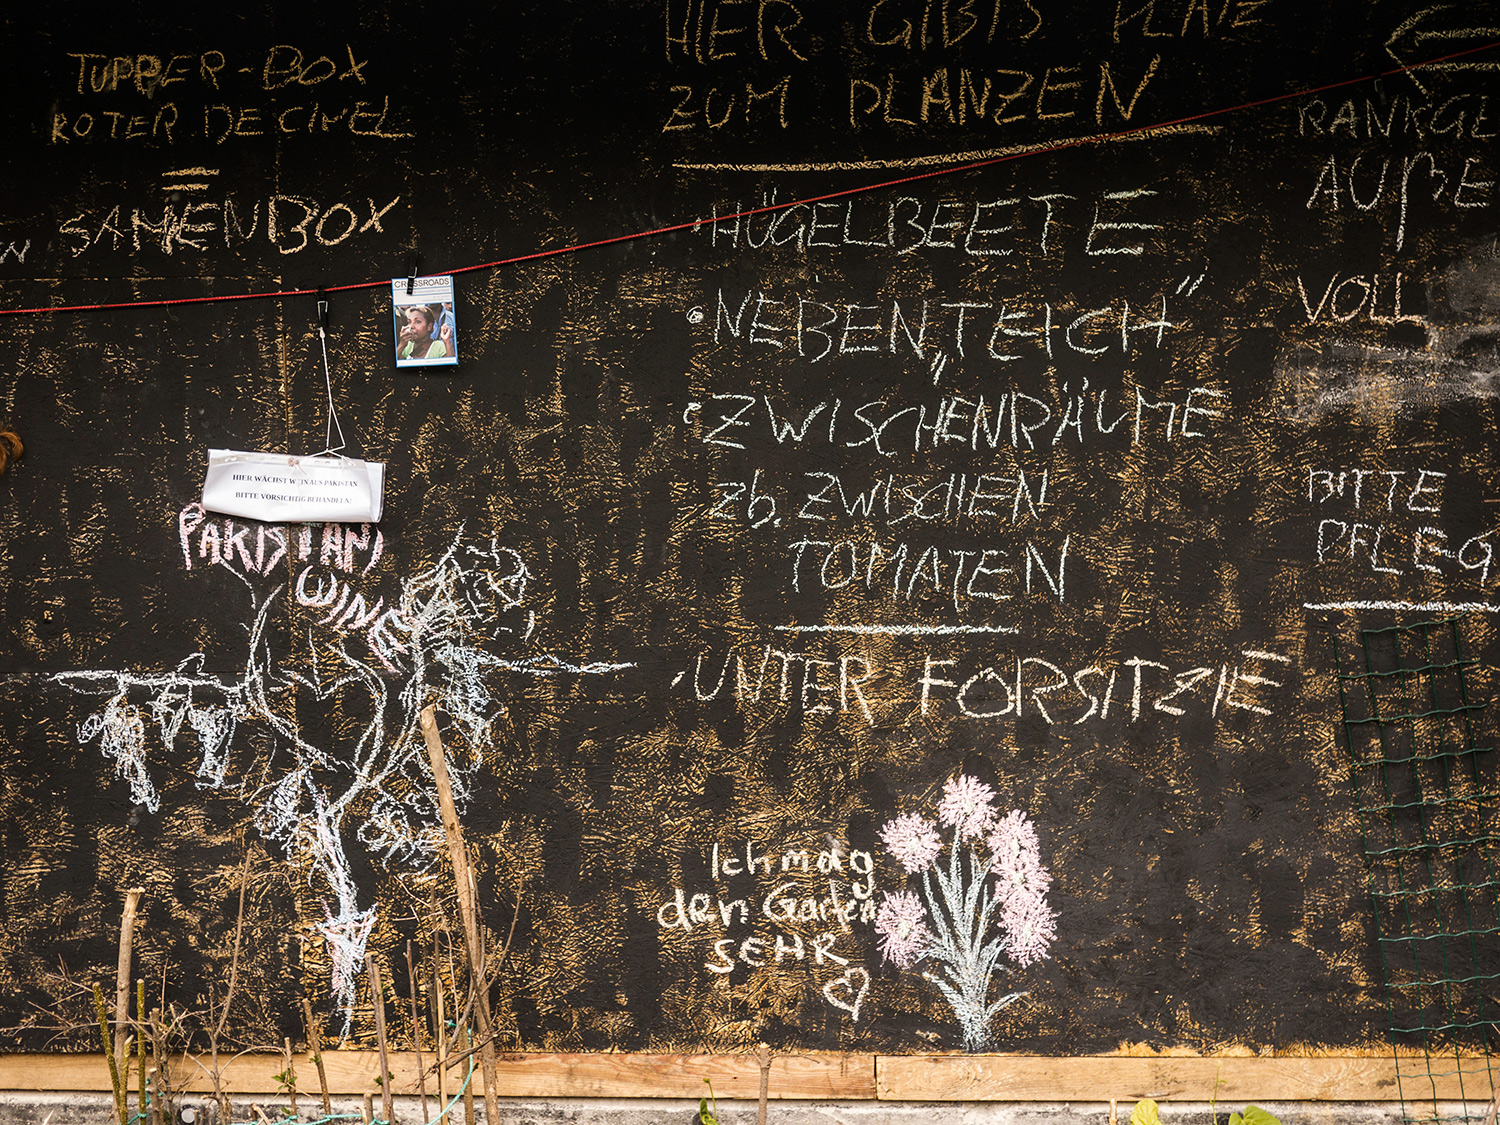 TUPPER-BOX
ROTER DECKEL
=
SAMENBOX
HIER GIBTS PLATZ
ZUM PLANZEN
• HÜGELBEETE
• NEBEN „TEICH“
• ZWISCHENRÄUME
zb. ZWISCHEN
TOMATEN
• UNTER FORSITZIE
RANKGE
AUßE
VOLL
BITTE
PFLEG
CROSSROADS
HIER WÄCHST WEIN AUS PAKISTAN
BITTE VORSICHTIG BEHANDELN!
PAKISTANI
WINE
Ich mag
den Garten
SEHR